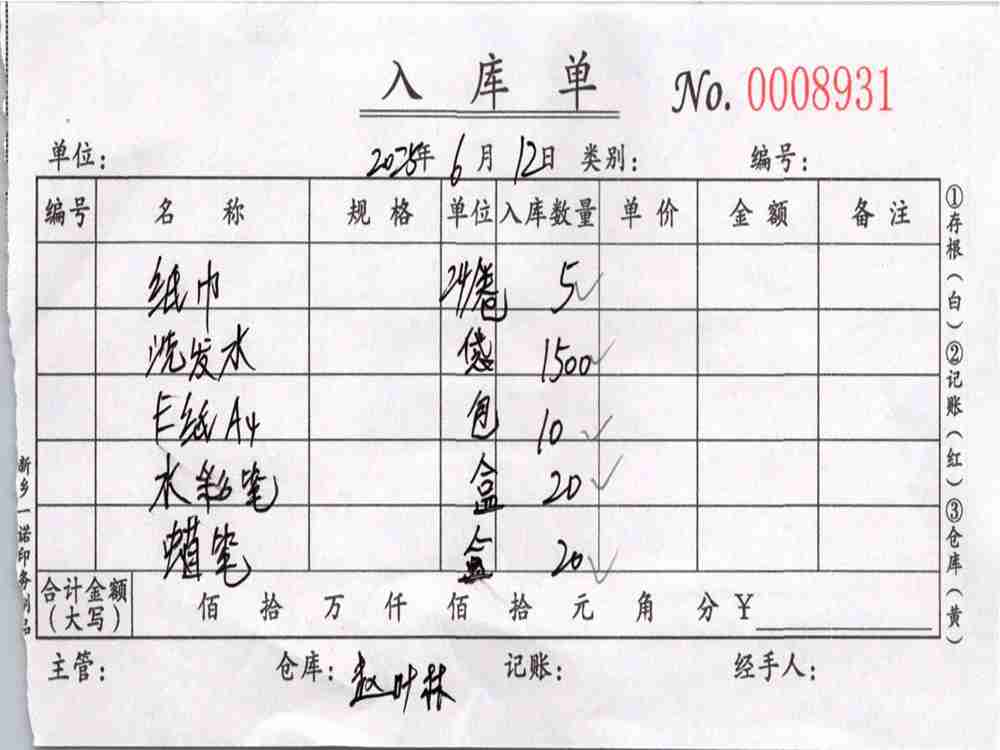 入库单 No. 0008931
单位： 2025年 6月 12日 类别： 编号：
编号 名称 规格 单位 入库数量 单价 金额 备注
纸巾 5
洗发水 袋 1500
纸A4 包 10
水彩笔 盒 20
蜡笔 盒 20
合计金额（大写） 佰 拾 万 仟 佰 拾 元 角 分 ¥
主管： 仓库：赵叶林 记账： 经手人：
①存根（白）②记账（红）③仓库（黄）
新乡一诺印务制品